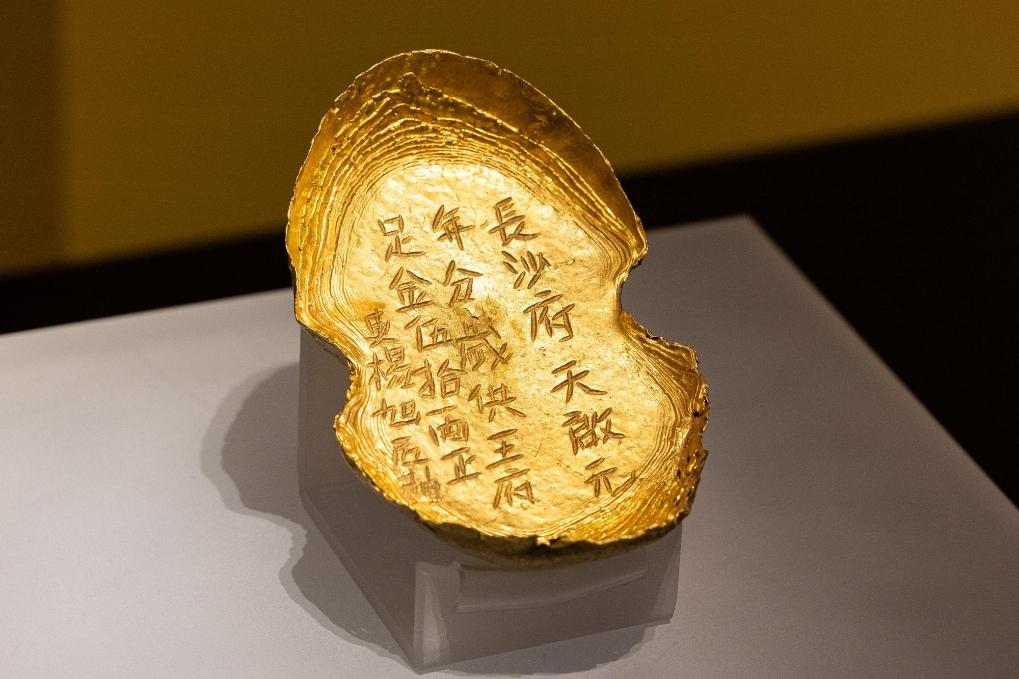 長沙府天啟元
年分歲供王府
足金伍拾両正
吏楊旭匠